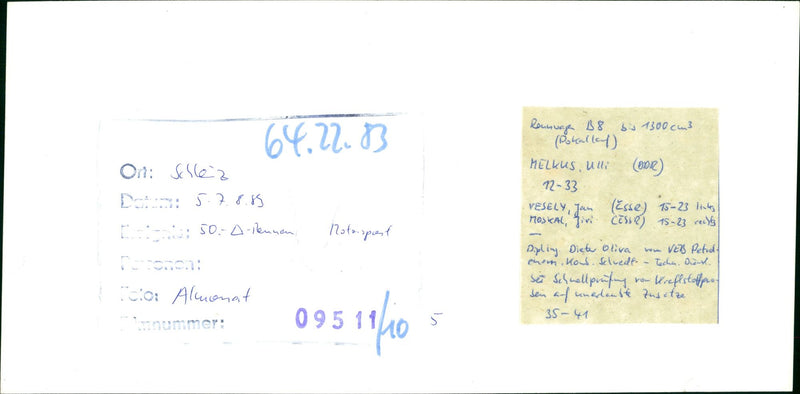 64.22.83
Ort: Schleiz
Datum: 5.-7.8.83
Ereignis: 50.-Δ-Rennen Motorsport
Personen:
Foto: Almonat
Filmnummer: 09511/10 5
Rennwagen B8 bis 1300 cm³
(Pokallauf)
MELKUS, Ulli (DDR)
12-33
VESELY, Jan (ČSSR) 15-23 links
MOSKAL, Jiri (ČSSR) 15-23 rechts
—
Dipl.ing. Dieter Oliva vom VEB Petrol-
chem. Komb. Schwedt - Techn. Dienst.
bei Schnellprüfung von Kraftstoffpro-
ben auf unerlaubte Zusätze
35-41